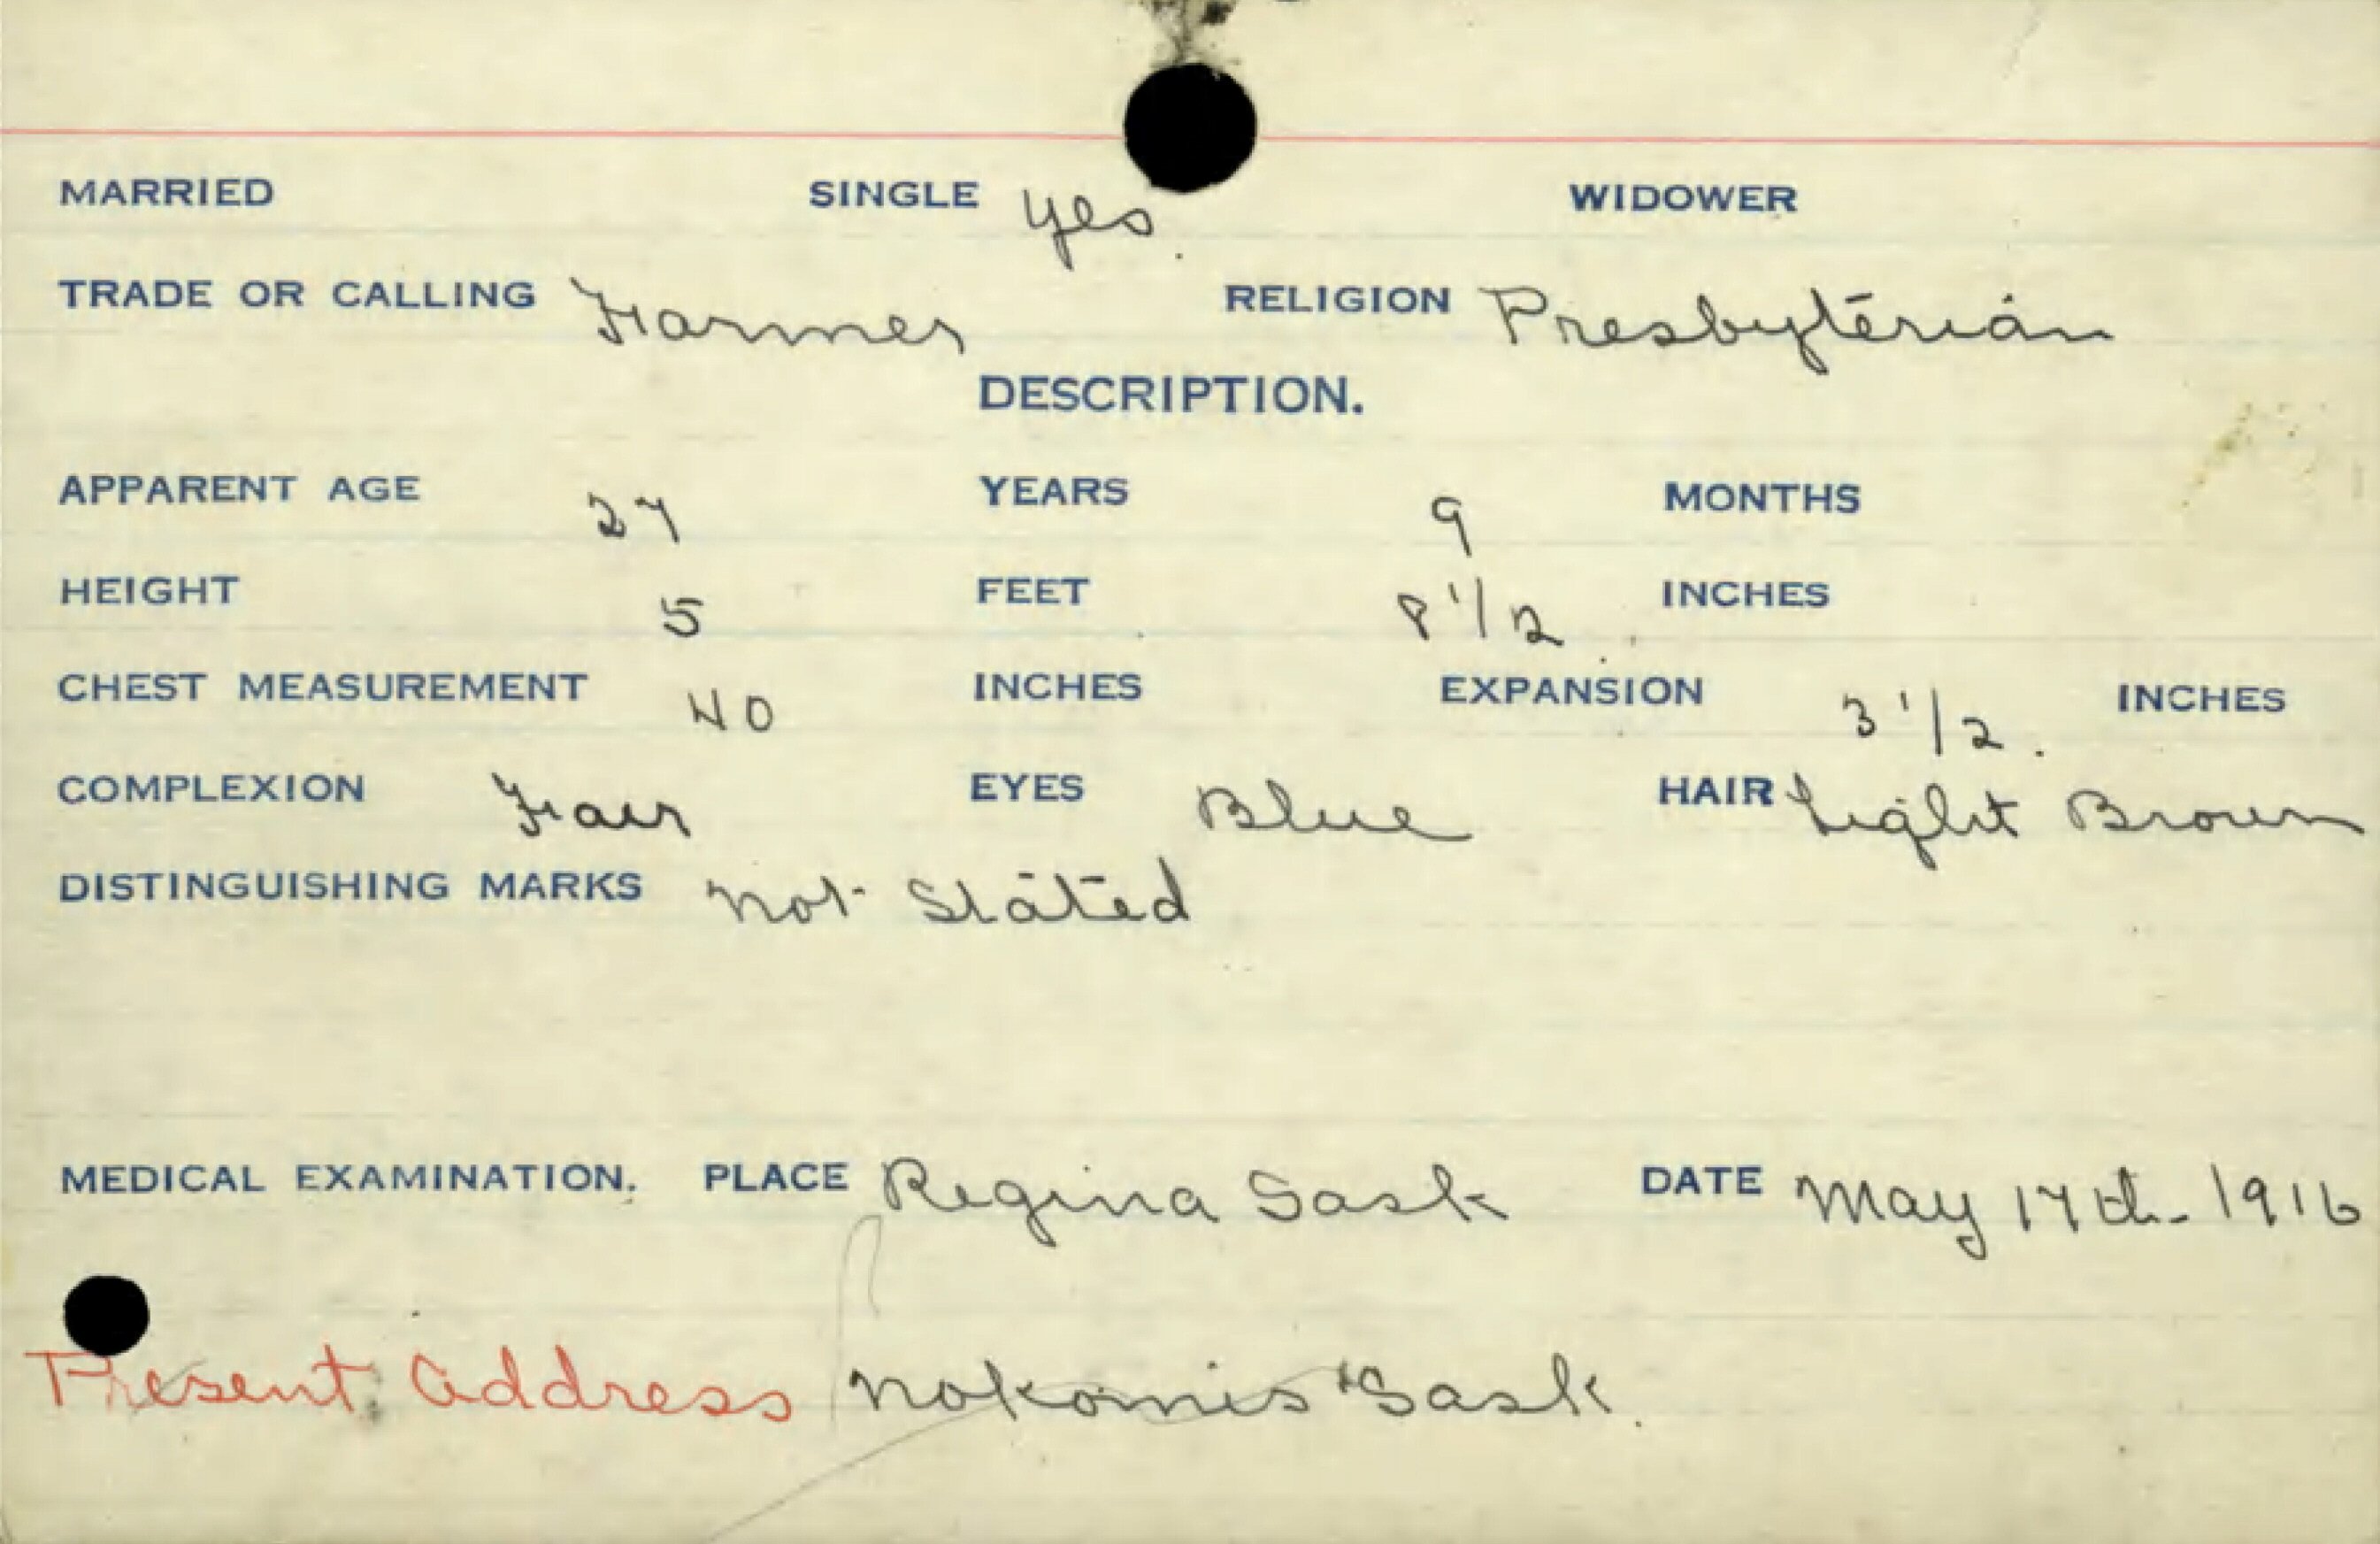 MARRIED SINGLE yes. WIDOWER
TRADE OR CALLING Farmer RELIGION Presbyterian
DESCRIPTION.
APPARENT AGE 27 YEARS 9 MONTHS
HEIGHT 5 FEET 8 1/2 INCHES
CHEST MEASUREMENT 40 INCHES EXPANSION 3 1/2. INCHES
COMPLEXION Fair EYES Blue HAIR Light Brown
DISTINGUISHING MARKS Not Stated
MEDICAL EXAMINATION. PLACE Regina Sask DATE May 17th - 1916
Present Address Nokomis Sask.